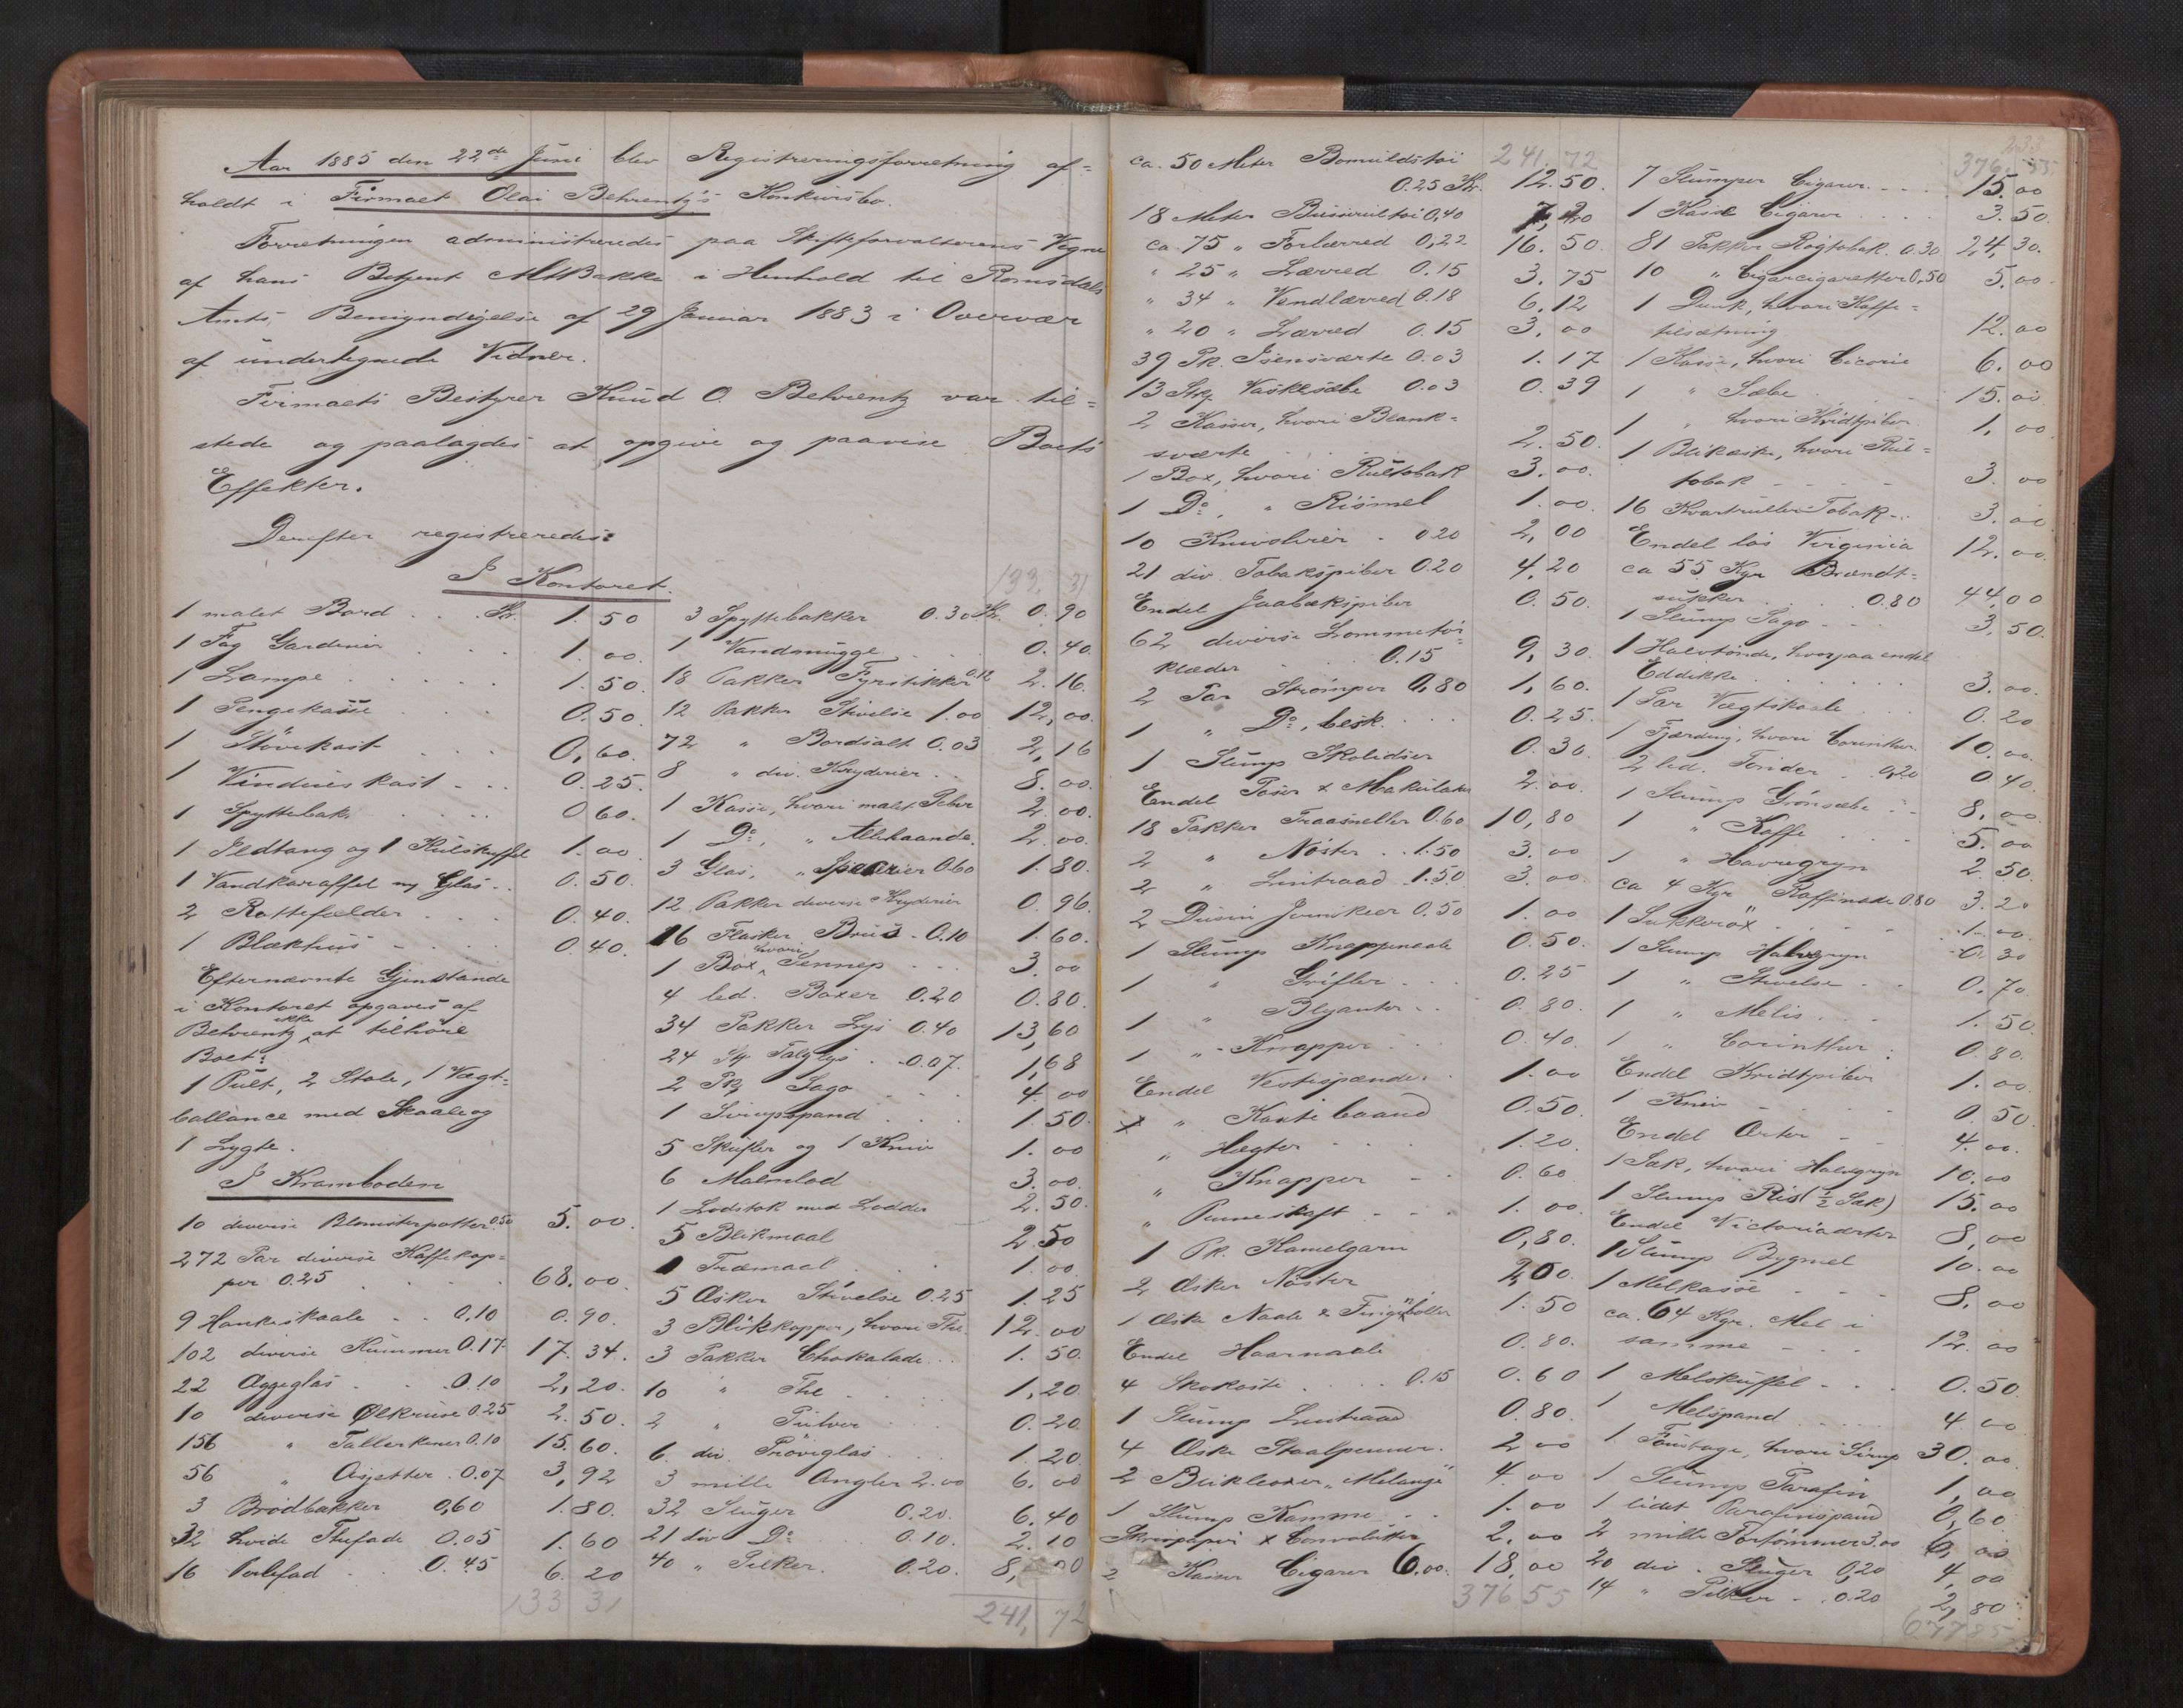 Aar 1885 den 22de Juni blev Registreringsforretning af=
holdt i Firmaet Olai Behrentz's Konkursbo.
Forretningen administreredes paa Skifteforvalterens Vegne
af hans Betjent MBakke i Henhold til Romsdals
Amts Bemyndigelse af 29 Januar 1883 i Overvær
af undertegnede Vidner.
Firmaets Bestyrer Knud O. Behrentz var til=
stede og paalagdes at opgive og paavise Boets
Effekter.
Derefter registreredes:
I Kontoret.
1 malet Bord . . . Kr. 1. 50
1 Fag Gardiner . . . 1. 00
1 Lampe . . . . 1. 50.
1 Pengekasse . . . 0. 50.
1 Støvekost . . . 0, 60.
1 Vindueskost . . . 0. 25.
1 Spyttebak . . . 0 60.
1 Ildtang og 1 Kulskuffel 1. 00
1 Vandkaraffel og Glas . . 0. 50.
2 Rottefælder . . . 0. 40.
1 Blækhus . . . 0. 40.
Efternævnte Gjenstande
i Kontoret opgaves af
Behrentz ikke at tilhøre
Boet:
1 Pult, 2 Stole, 1 Vægt=
ballance med Skaale og
1 Lygte.
I Kramboden
10 diverse Blomsterpotter 0.50 5. 00.
272 Par diverse Kaffekop=
per 0.25 . . . 68. 00.
9 Hankeskaale . . 0,10 0. 90.
102 diverse Kummer 0.17. 17. 34.
22 Æggeglas . . 0.10 2, 20.
10 diverse Ølkruse 0.25 2. 50.
156 " Tallerkener 0.10 15. 60.
56 " Asjetter . 0.07 3, 92
3 Brødbakker 0,60 1. 80.
32 hvide Thefade 0.05 1. 60
16 0.45 6. 20
133 31
133. 31
3 Spyttebakker 0.30 Kr. 0. 90
1 Vandmugge . . . 0. 40.
18 Pakker Fyrstikker 0.12 2. 16.
12 Pakker Stivelse 1.00 12, 00.
72 " Bordsalt 0.03 2, 16
8 " div. Krydderier . . 8. 00.
1 Kasse, hvori malet Peber 2. 00.
1 Do, " Allehaande. 2. 00.
3 Glas, " 0.60 1. 80.
12 Pakker diverse Krydderier 0. 96.
16 Flasker Brus . 0.10 1. 60.
1 Box, hvori Sennep . . . 3. 00
4 led. Boxer 0.20 0. 80.
34 Pakker Lys 0.40 13, 60
24 St Talglys . . 0.07. 1, 68
2 Pk Sago . . . 4. 00
1 Sirupspand . . . 1. 50.
5 Skufler og 1 Kniv 1. 00
6 Malmlod . . . 3. 00.
1 Lodstok med Lodder 2. 50.
5 Blikmaal 2. 50
1 Træmaal . . . 1. 00.
5 Æsker Stivelse 0.25 1. 25
3 Blikkopper, hvori The. 12. 00
3 Pakker Chokolade . . . 1. 50.
10 " The . . . 1, 20.
2 " Pulver . . . 0. 20.
6 div. Prøveglas . . 1. 20.
3 mille Angler 2.00 6. 00
32 Sluger 0.20. 6. 40
21 div Do 0.10. 2. 10
40 " Pilker. 0.20. 8, 00
241, 72
241. 72
ca. 50 Meter Bomuldstøi
0.25 Kr. 12. 50.
18 Meter 0,40 7, 20
ca. 75 " Forlærred 0,22 16. 50.
" 25 " Lærred 0.15 3. 75
" 34 " Vendlærred 0.18 6. 12
" 20 " Lærred 0.15 3. 00
39 Pk. Isensværte 0.03 1. 17
13 Stk. Vaskesæbe 0.03 0. 39
2 Kasser, hvori Blank=
sværte 2. 50.
1 Box, hvori Rultobak 3. 00.
1 Do, " Rismel 1. 00.
10 . 0.20 2, 00
21 div. Tobakspiber 0.20 4, 20
Endel 0. 50.
62 diverse Lommetør=
klæder . . . 0.15 9, 30.
2 Par Strømper 0,80 1, 60.
1 " Do, besk. . . . 0. 25.
1 Slump Skolidser 0. 30.
Endel Poser & Makulatur 2. 00.
18 Pakker Traasneller 0.60 10, 80
2 " Nøster . . 1.50 3. 00
2 " Lintraad . 1.50 3. 00
2 Dusin 0.50 1. 00
1 Slump Knappenaale 0. 50.
1 " Grifler . . . 0. 25
1 " Blyanter . . . 0. 80.
1 " Knapper . . . 0. 40.
Endel Vestespænder . . 1. 00
" Kantebaand 0. 50.
" Hægter . . . 1. 20.
" Knapper . . . 0. 60
" Penneskaft . . . 1. 00.
1 Pk. Kamelgarn 0, 80.
2 Æsker Nøster 2, 00.
1 Æske Naale & Fingerbøller 1. 50
Endel Haarnaale 0. 80.
4 Skokoste . . . . 0.15 0. 60
1 Slump Lintraad 0. 80.
4 Æske Staalpenner. 2 00
2 Blikboxer „Melange" 4. 00
1 Slump Kamme . . . 1. 00
Skrivpapir & Convolutter 2. 00
2 Kasser Cigarer 6.00. 18, 00
376 55
376 55
7 Slumper Cigarer . . . 15. 00
1 Kasse Cigarer . . . 3. 50.
81 Pakker Røgtobak. 0.30 24, 30.
10 " Cigarcigaretter 0,50 5. 00.
1 Dunk, hvori Kaffe=
tilsætning 12. 00
1 Kasse, hvori Cicorie 6. 00
1 " Sæbe . . . 15. 00
1 " hvori Kridtpiber 1, 00
1 Blikæske, hvori Rul=
tobak . . . . 3. 00
16 Kvartruller Tobak . . 3. 00
Endel løs Virginia 12. 00
ca 55 Kgr Brændt=
sukker . . . 0.80 44, 00
1 Slump Sago . . . 3, 50.
1 Halvtønde, hvorpaa endel
Eddikke . . . . 3. 00.
1 Par Vægtskaale . . . 0. 20
1 Fjærding, hvori Corinther 10. 00.
2 led. Tønder . 0,20 0 40.
1 Slump Grønsæbe . . 8. 00
1 " Kaffe . . . 5. 00
1 " Havregryn 2. 50.
ca 4 Kgr Raffinade 0.80 3. 20
1 Sukkerøx . . . . 1. 00.
1 Slump Halvgryn 0. 30
1 " Stivelse . . 0. 70
1 " Melis . . . 1. 50
1 " Corinther . 0. 80.
Endel Kridtpiber 1. 00
1 Kniv . . . . 0. 50.
Endel Ærter . . 4. 00.
1 Sæk, hvori Halvgryn 10. 00
1 Slump Ris (½ Sæk) 15. 00
Endel Victoriaærter 8, 00
1 Slump Bygmel 10. 00
1 Melkasse . . . 8. 00
ca. 64 Kgr. Mel i
samme . . . 12. 00
1 Melskuffel . . . 0. 50.
1 Melspand . . . . 4 00
1 Foustage, hvori Sirup 30. 00.
1 Slump Parafin 1, 00
1 lidet Parafinspand 0, 60
2 mille Fortømmer 3.00 6, 00
20 div. Sluger 0,20 4, 00
14 " Pilker . . 0.20 2, 80
677 85